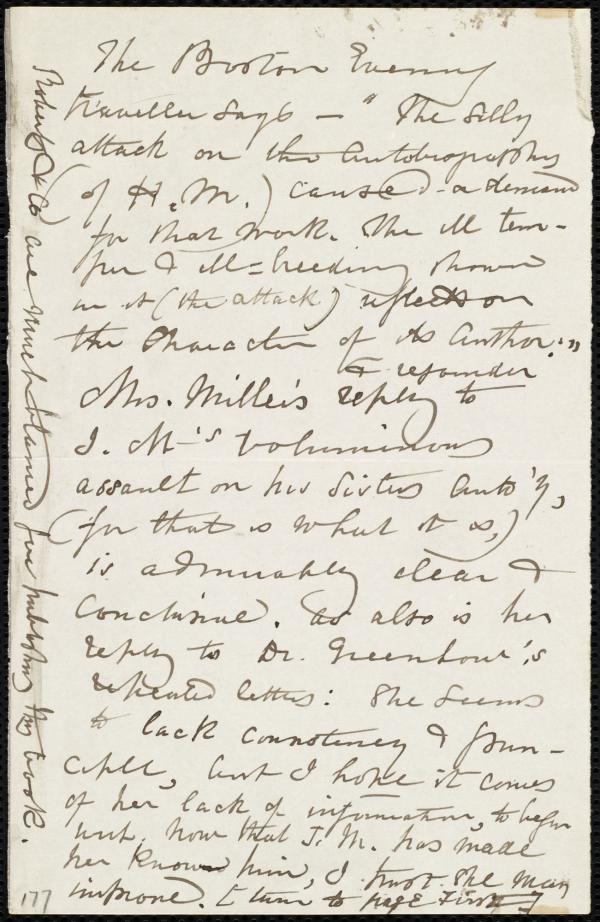 The Boston Evening
Traveller says — "The silly
attack on the Autobiography
(of H. M.) caused a demand
for that work. The ill tem-
per & ill=breeding shown
in it (the attack) reflects on
the character of its author."
& rejoinder
Mrs. Miller's reply to
J. M—'s voluminous
assault on his sisters Auto'y,
(for that is what it is,)
is admirably clear &
conclusive. as also is her
reply to Dr. Greenhow's
repeated letters: She seems
to lack consistency & prin-
ciple, but I hope it comes
of her lack of information, to begin
with. Now that J. M. has made
her know him, I trust she may
improve. [turn to page First]
Roberts & Co are much blamed for publishing his book.
177